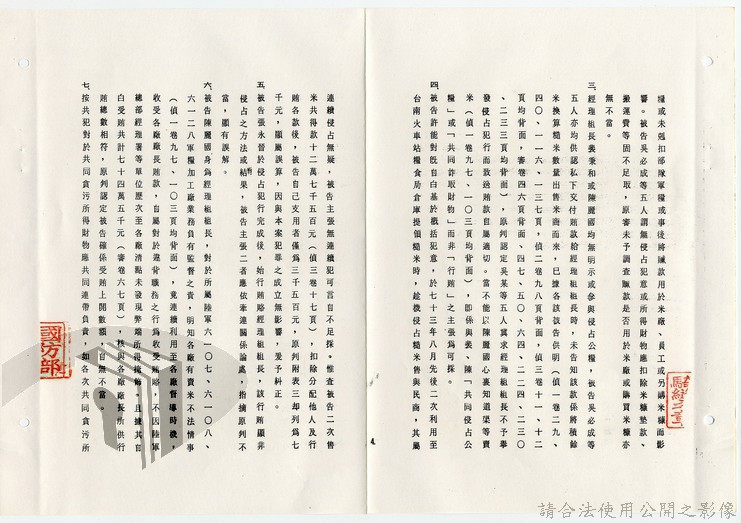 糧或未剋扣部隊軍糧或事後將贓款用於米廠、員工或另購米糠而影
響。被告吳必成等五人謂無侵占犯意或所得財物應扣除米糠墊款、
搬運費等固不足取，原審未予調查贓款是否用於米廠或購買米糠亦
無不當。
三、經理組長裘秉和或陳麗國均無明示或參與侵占公糧，被告吳必成等
五人亦均供認私下交付賄款給經理組組長時，未告知該款係將積餘
米換算糙米數量出售米商而來，已據各該被告供明（偵一卷二九、
四〇、一一六、一三七頁，偵二卷九八頁背面，偵三卷十一、十二
頁均背面，審卷四六頁背面、四七、五〇、六四、二二四、二三〇
、二三三頁均背面），原判認定吳某等五人冀求經理組組長不予舉
發侵占犯行而致送賄款自屬適切。當不能以陳麗國心裏知道梁等賣
米（偵一卷九七、一〇三頁均背面），即係與裘、陳「共同侵占公
糧」或「共同詐取財物」而非「行賄」之主張為可採。
四、被告許能對既自白基於概括犯意，於七十三年八月先後二次利用至
台南火車站糧食局倉庫提領糙米時，趁機侵占糙米售與民商，其屬
連續侵占無疑，被告主張無連續犯可言自不足採。惟查被告二次售
米共得款十二萬七千五百元（偵三卷十七頁），扣除分配他人及行
賄各款後，被告自己支用者僅為三千五百元，原判附表三却列為七
千元，顯屬誤算，因與本案犯罪之成立無影響，爰予糾正。
五、被告張永晉於侵占犯行完成後，始行賄賂經理組組長，該行賄顯非
侵占之方法或結果，被告主張二者應依牽連關係論處，指摘原判不
當，顯有誤解。
六、被告陳麗國身為經理組組長，對於所屬陸軍六一〇七、六一〇八、
六一二八軍糧加工廠業務負有監督之責，明知各廠有賣米不法情事
（偵一卷九七、一〇三頁均背面），竟連續利用至各廠督導時機，
收受各廠廠長賄款，自屬對於違背職務之行為收受賄賂，不因陸軍
總部經理署等單位歷次至各廠清點未發現弊端所得掩飾。且據其自
白受賄共計七十四萬五千元（審卷六七頁），核與各廠廠長所供行
賄總數相符，原判認定被告確係受賄上開數額，自無不當。
七、按共犯對於共同貪污所得財物應共同連帶負責，如各次共同貪污所
國防部
請合法使用公開之影像